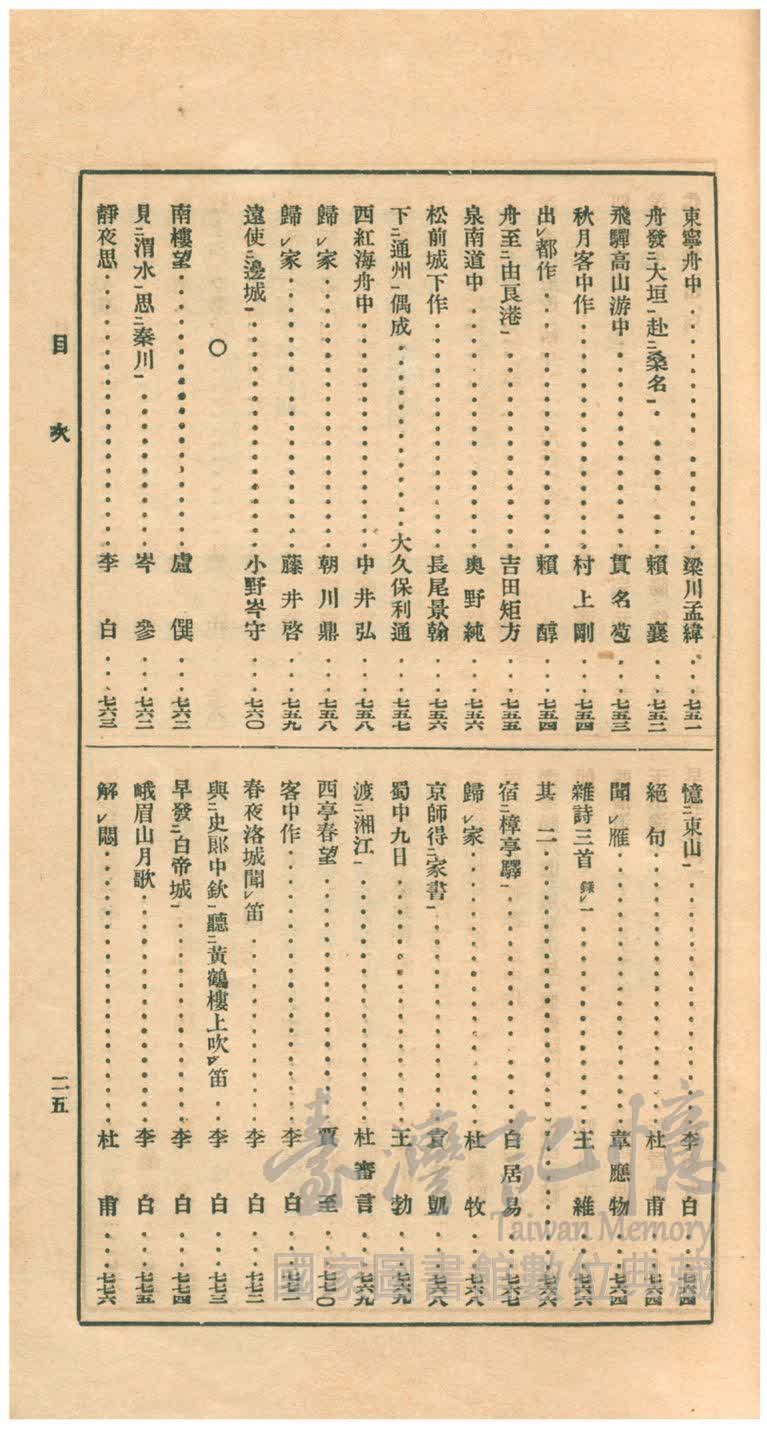 東寧舟中 梁川孟緯 七五一
舟發二大垣一赴二桑名一 賴襄 七五二
飛驒高山游中 貫名苞 七五三
秋月客中作 村上剛 七五四
出レ都作 賴醇 七五四
舟至二由良港一 吉田矩方 七五五
泉南道中 奧野純 七五六
松前城下作 長尾景翰 七五六
下二通州一偶成 大久保利通 七五七
西紅海舟中 中井弘 七五八
歸レ家 朝川鼎 七五八
歸レ家 藤井啓 七五九
遠使二邊城一 小野岑守 七六〇
○
南樓望 盧僎 七六二
見二渭水一思二秦川一 岑參 七六二
靜夜思 李白 七六三
憶二東山一 李白 七六四
絕句 杜甫 七六四
聞レ雁 韋應物 七六四
雜詩三首 錄レ一 王維 七六六
其二 七六六
宿二樟亭驛一 白居易 七六七
歸レ家 杜牧 七六八
京師得二家書一 袁凱 七六八
蜀中九日 王勃 七六九
渡二湘江一 杜審言 七六九
西亭春望 賈至 七七〇
客中作 李白 七七一
春夜洛城聞レ笛 李白 七七二
與二史郎中欽一聽二黃鶴樓上吹レ笛 李白 七七三
早發二白帝城一 李白 七七四
峨眉山月歌 李白 七七五
解レ悶 杜甫 七七六
目次
二五
臺灣記憶
Taiwan Memory
國家圖書館數位典藏